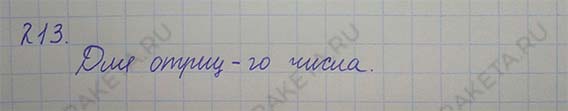 213.
Для отриц-го числа.